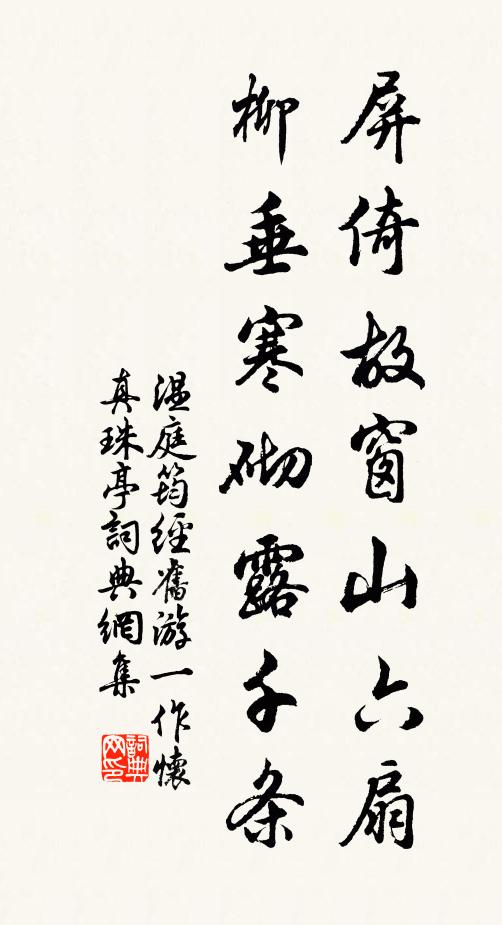 屏倚故窗山六扇
柳垂寒砌露千条
温庭筠經舊游一作懷
真珠亭詞典網集
詞典网印